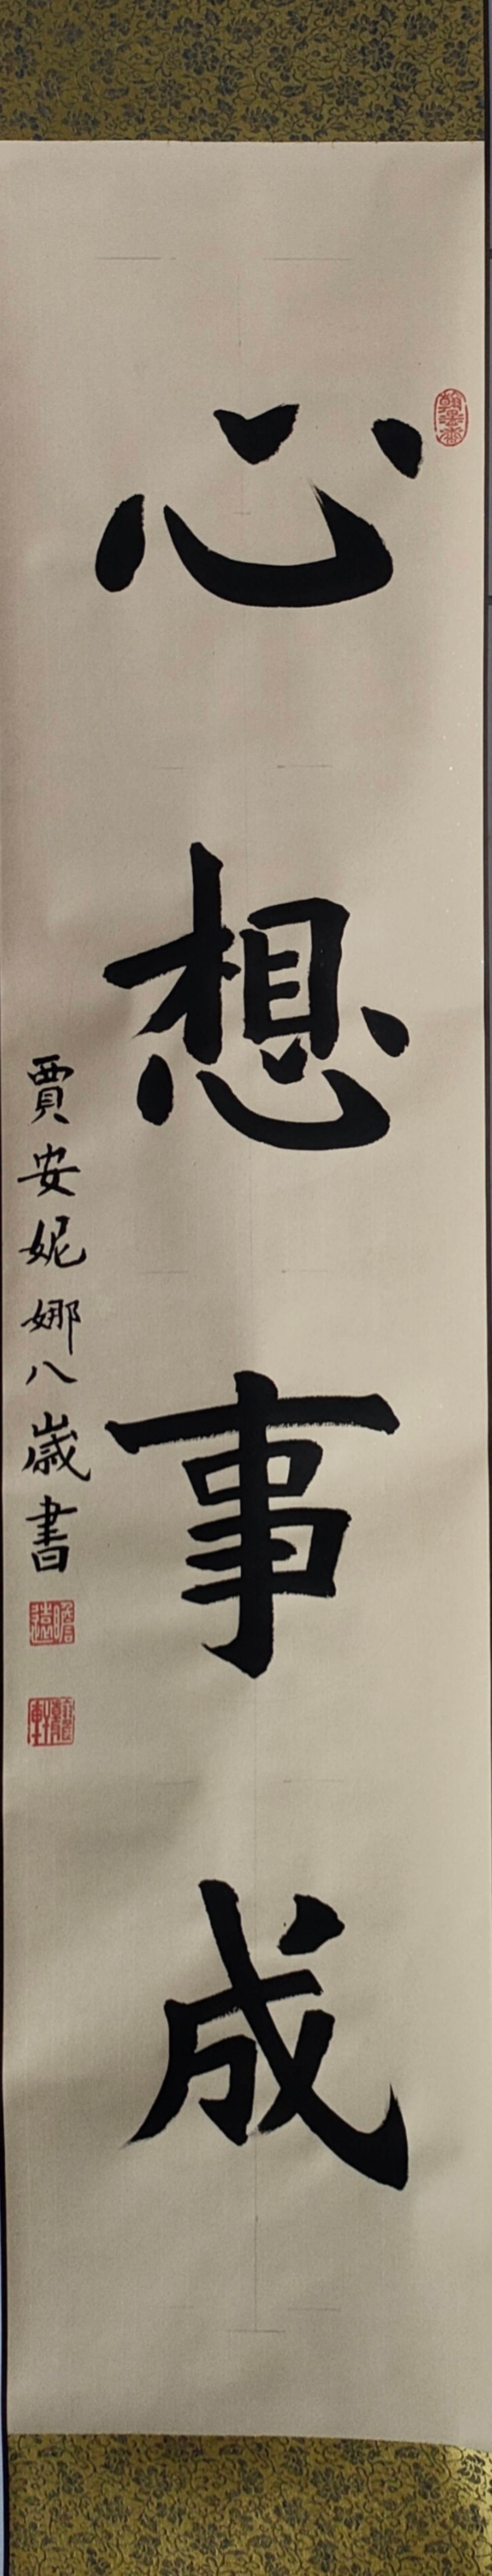 心想事成
賈安妮娜八歲書